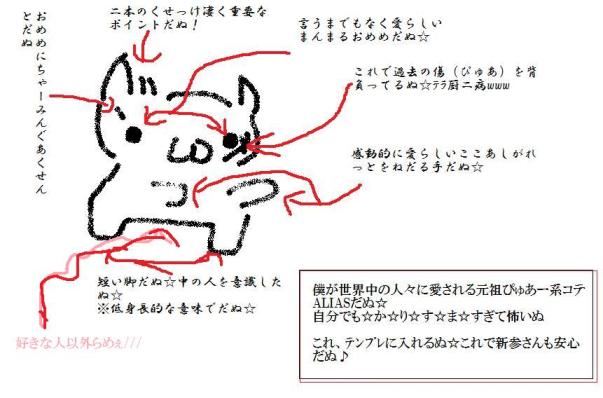 二本のくせっけ凄く重要な
ポイントだぬ！
言うまでもなく愛らしい
まんまるおめめだぬ☆
おめめにちゃーみんぐあくせん
とだぬ
これで過去の傷（ぴゅあ）を背
負ってるぬ☆ﾃﾗ厨二病www
感動的に愛らしいここあしがれ
っとをねだる手だぬ☆
短い脚だぬ☆中の人を意識した
ぬ☆
※低身長的な意味でだぬ☆
好きな人以外らめぇ///
僕が世界中の人々に愛される元祖ぴゅあー系コテ
ALIASだぬ☆
自分でも☆か☆り☆す☆ま☆すぎて怖いぬ
これ、テンプレに入れるぬ☆これで新参さんも安心
だぬ♪